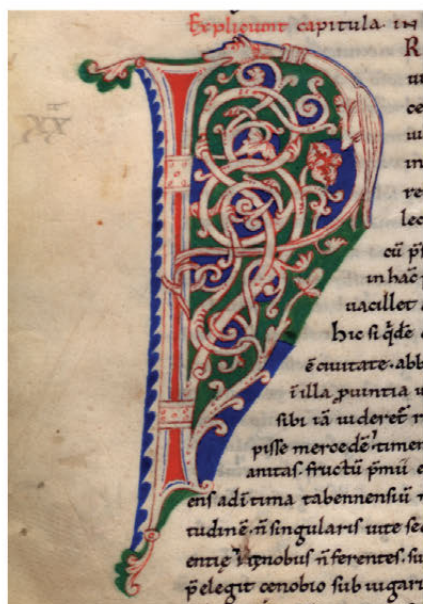 Expliciunt capitula. IN
P
R
uu
ce
ui
in
re
lec
cū p̄
in hac
uacillet
hic si q̄de
ē ciuitate. abb
ī illa ꝓuintia u
sibi iā uideret̄ r
pisse mercedē timen
anitas. fructū p̄mii e
ens ad ītima tabennensiū
tudinē. n̄ singularis uite sec
n̄ ferentes. su
p̄elegit cenobio sub uugari